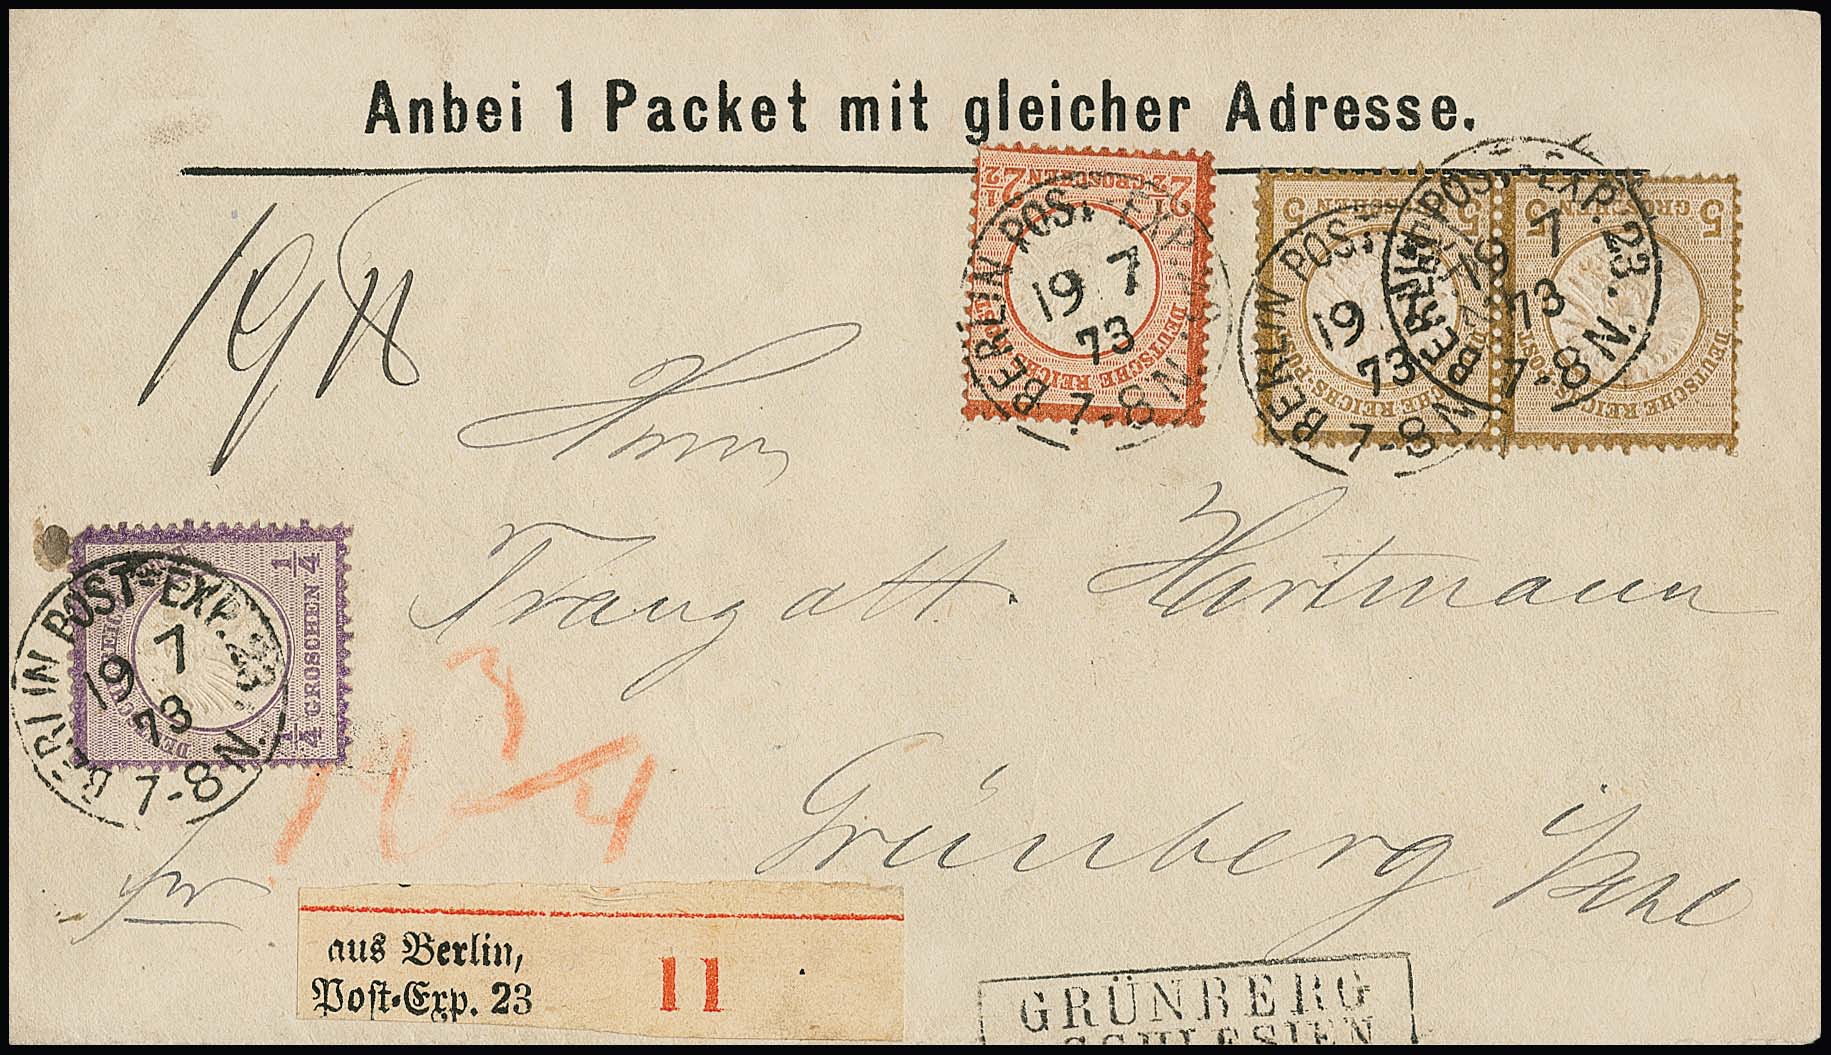 Anbei 1 Packet mit gleicher Adresse.
2½ GROSCHEN 2½
DEUTSCHE REICHS-POST
BERLIN POST-EXP. 23.
19 7
73
7-8 N.
5 GROSCHEN 5
DEUTSCHE REICHS-POST
BERLIN POST-EXP. 23.
19 7
73
7-8 N.
5 GROSCHEN 5
DEUTSCHE REICHS-POST
BERLIN POST-EXP. 23.
19 7
73
7-8 N.
Herrn
Traugott Hartmann
¼ GROSCHEN ¼
BERLIN POST-EXP. 23.
19 7
73
7-8 N.
3/4
Grünberg i/Schl
fr
aus Berlin,
Post-Exp. 23
11
GRÜNBERG
SCHLESIEN